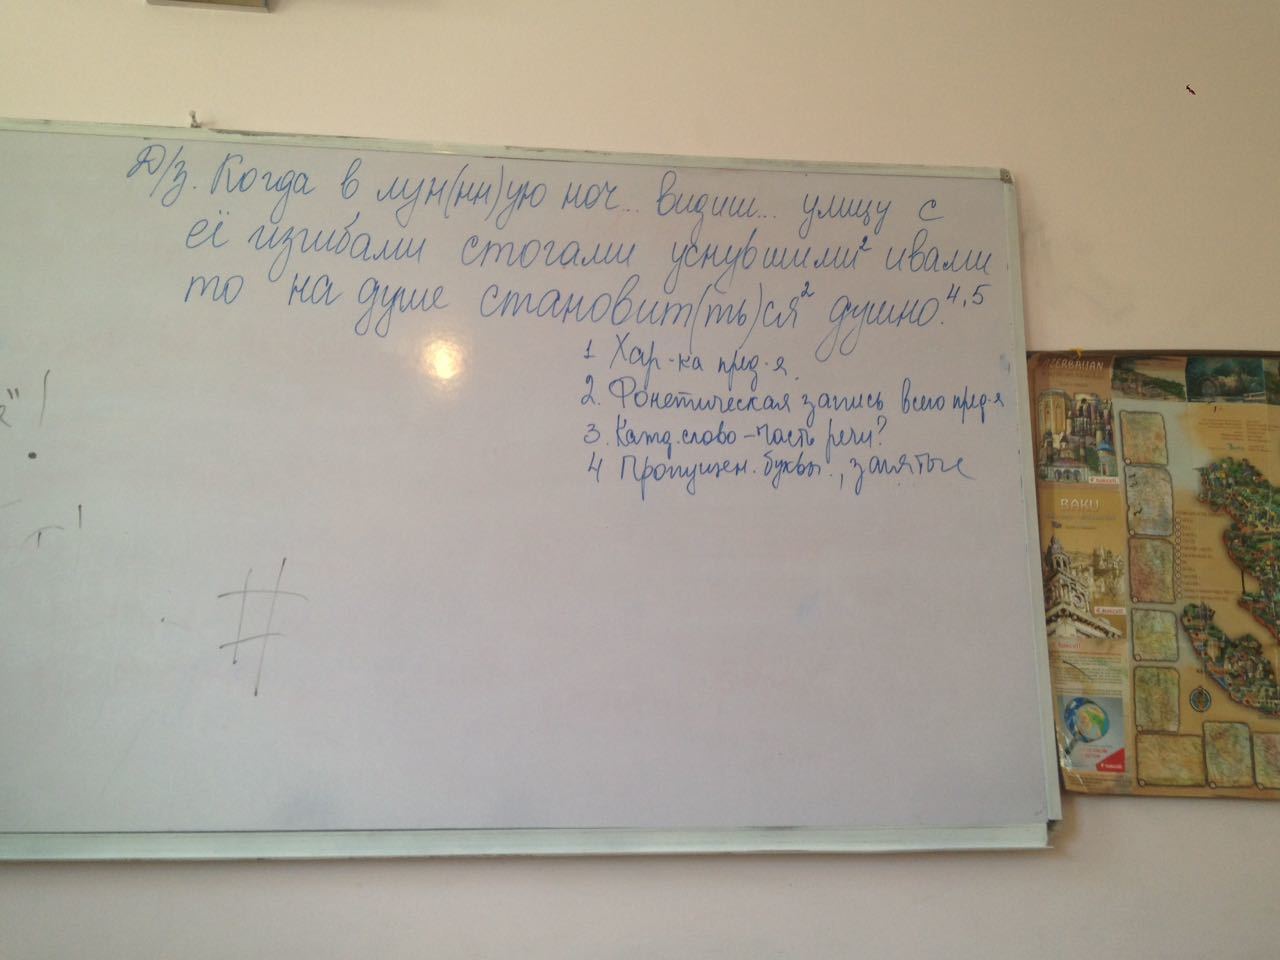 Д/з. Когда в лун(нн)ую ноч... видиш... улицу с
её изгибами стогами уснувшими² ивами
то на душе становит(ть)ся² душно.⁴,⁵
1 Хар-ка пред-я.
2. Фонетическая запись всего пред-я
3. Кажд. слово – часть речи?
4 Пропущен. буквы., запятые
AZERBAIJAN
BAKU